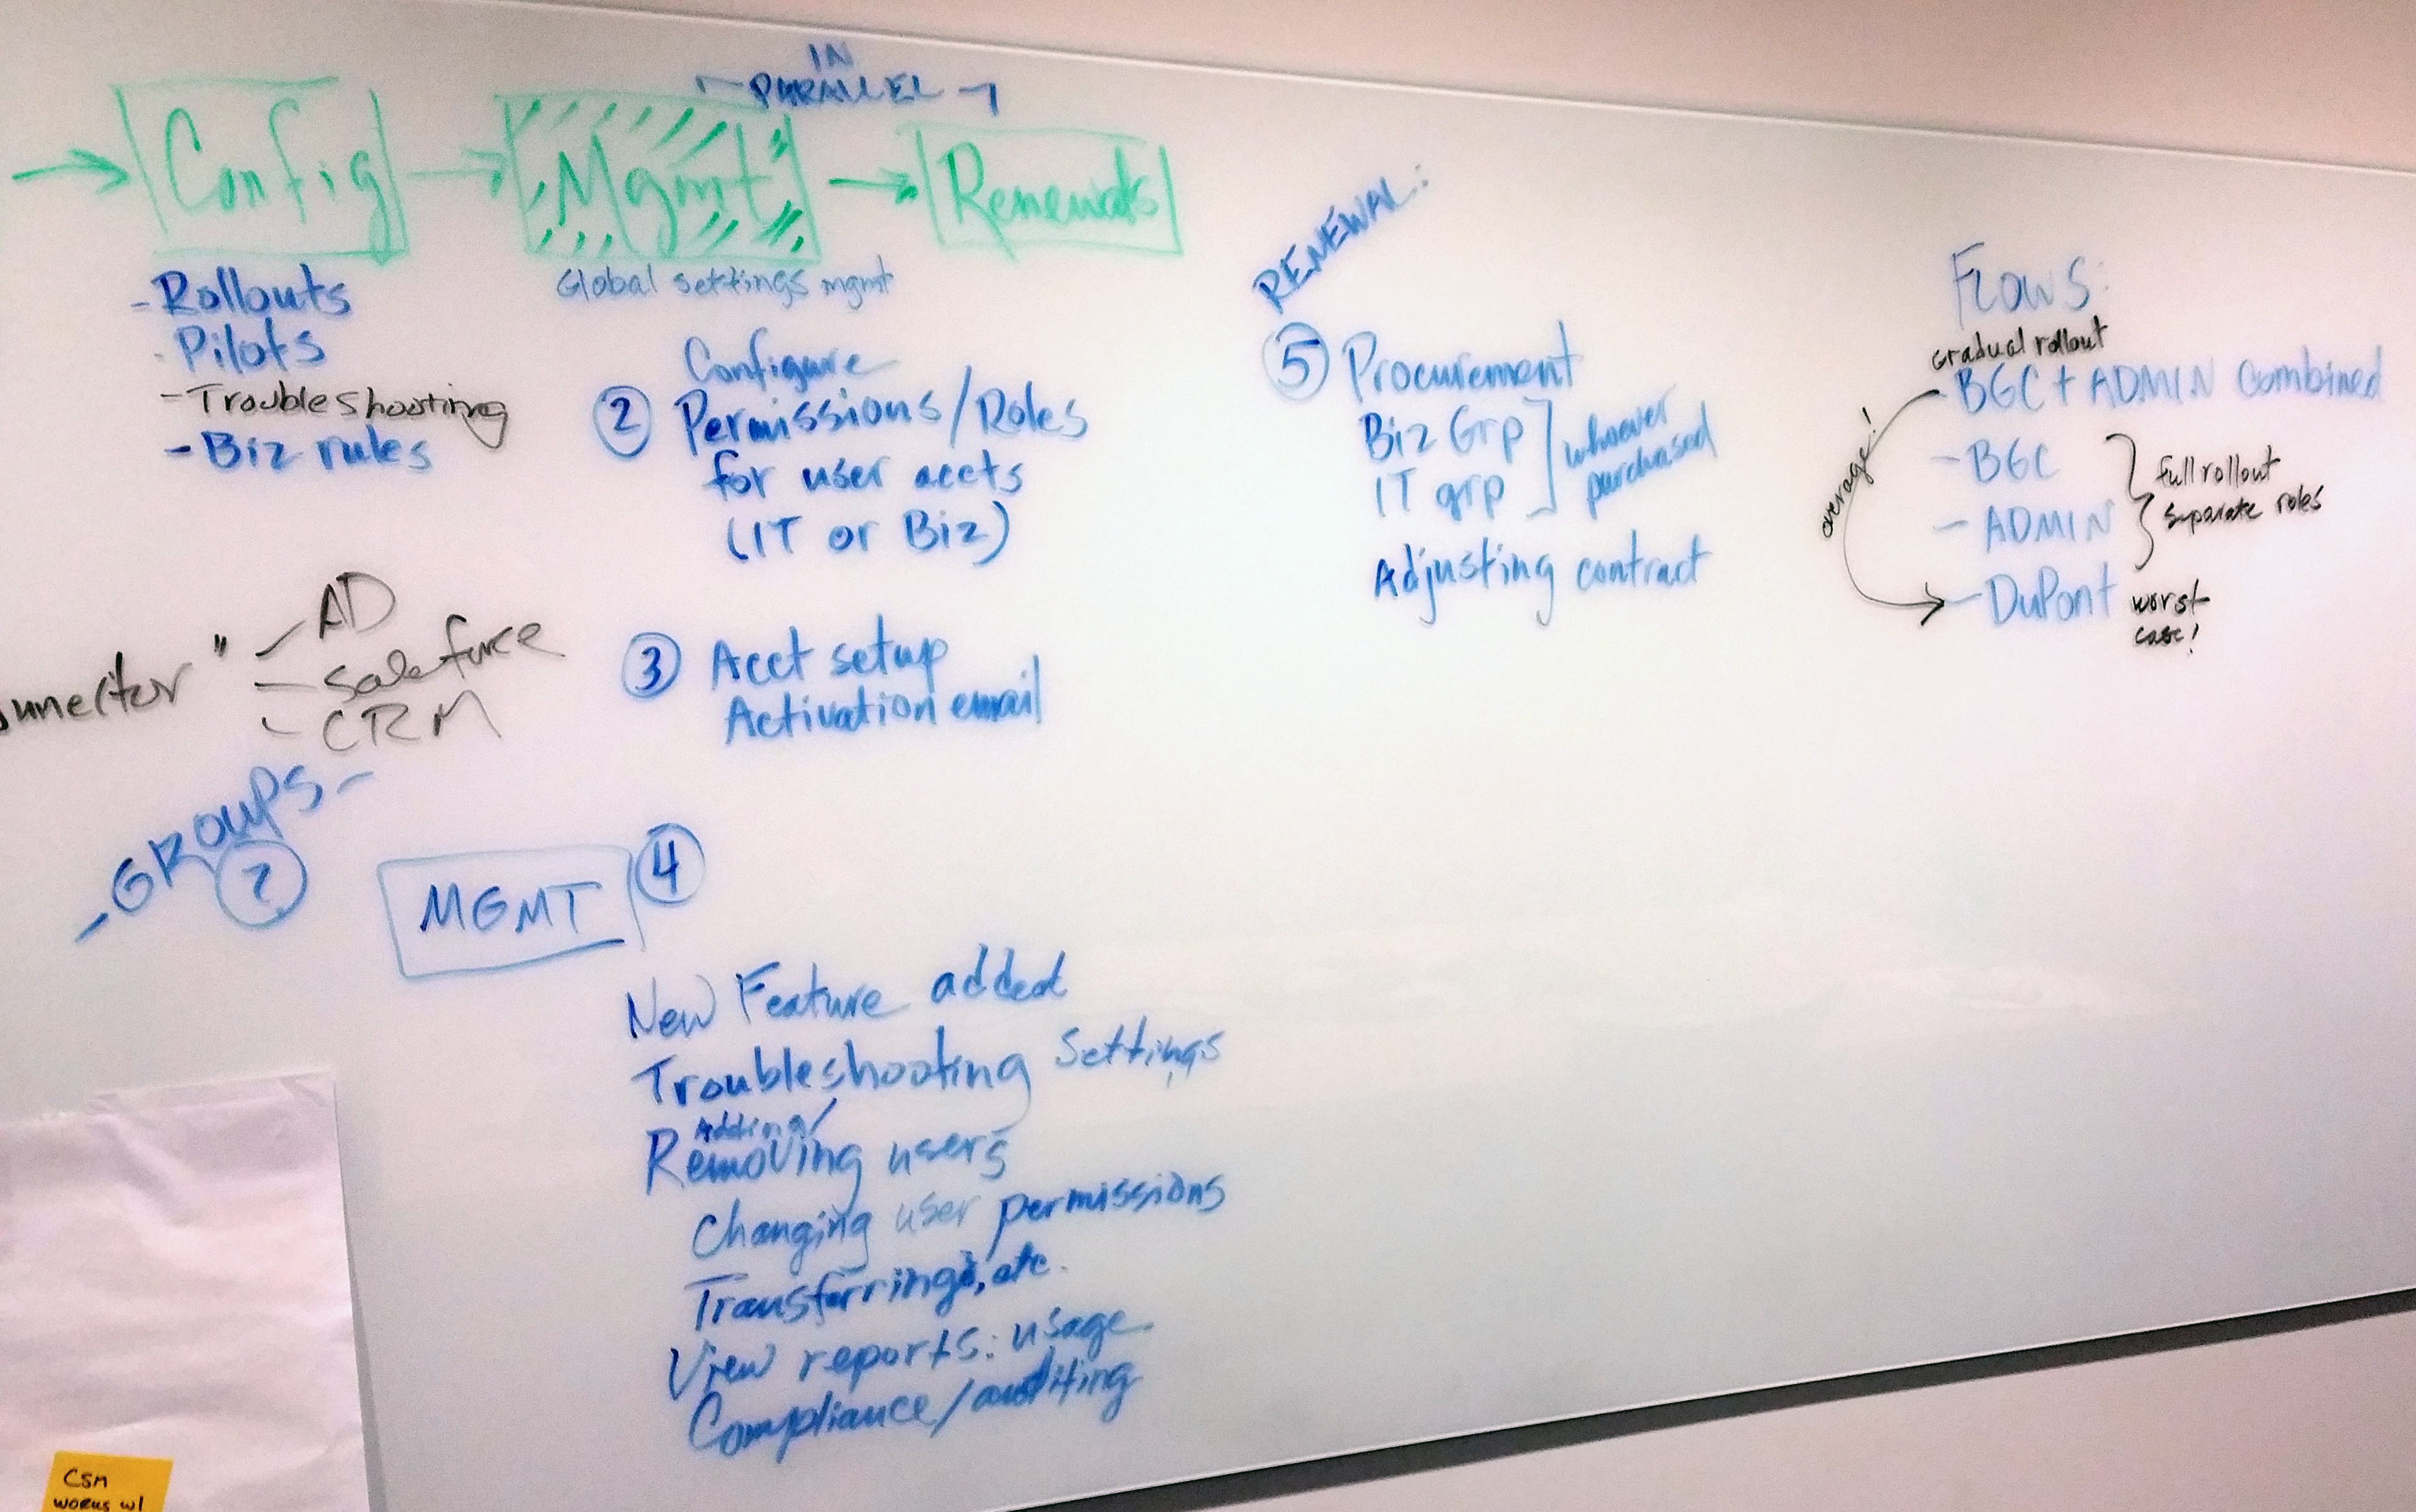 IN
PARALLEL
Config
Mgmt
Renewals
- Rollouts
- Pilots
- Troubleshooting
- Biz rules
Global settings mgmt
Configure
② Permissions/Roles
for user accts
(IT or Biz)
③ Acct setup
Activation email
" - AD
- Salesforce
- CRM
- GROUPS -
?
MGMT
④
New Feature added
Troubleshooting Settings
Adding/
Removing users
Changing user permissions
Transferring, etc.
View reports: usage
Compliance/auditing
RENEWAL:
⑤ Procurement
Biz Grp
IT grp
whoever
purchased
Adjusting contract
Flows:
gradual rollout
- BGC + ADMIN Combined
- BGC
- ADMIN
full rollout
separate roles
- DuPont worst
case!
CSM
works w/